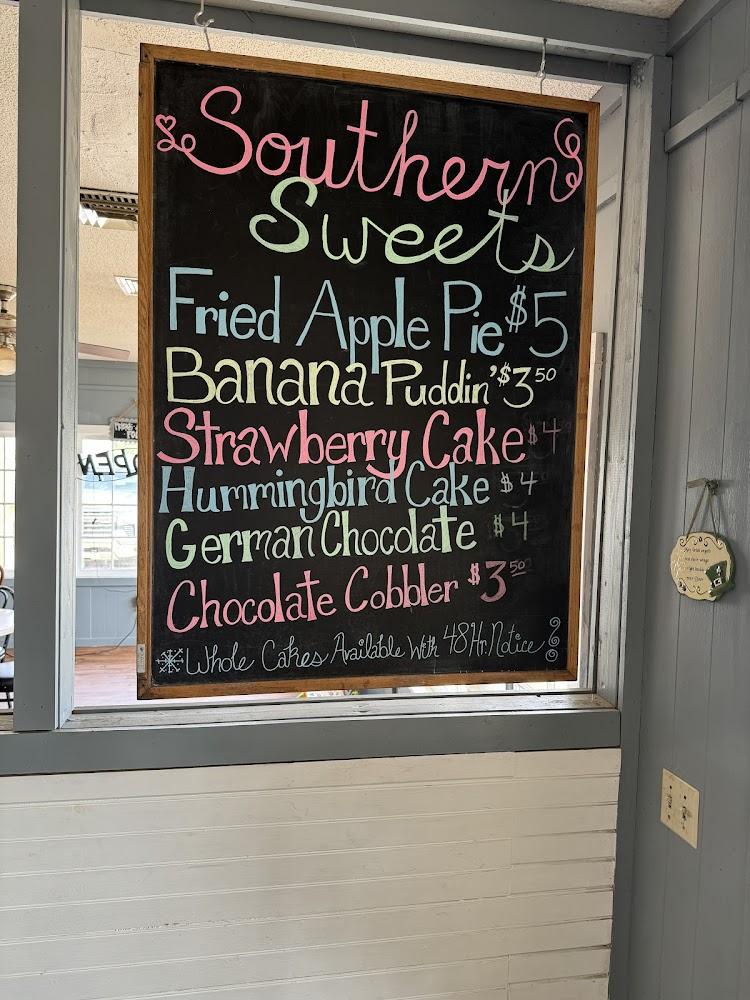 Southern
Sweets
Fried Apple Pie $5
Banana Puddin' $3 50
Strawberry Cake $4
Hummingbird Cake $4
German Chocolate $4
Chocolate Cobbler $3 50
Whole Cakes Available With 48 Hr. Notice
OPEN